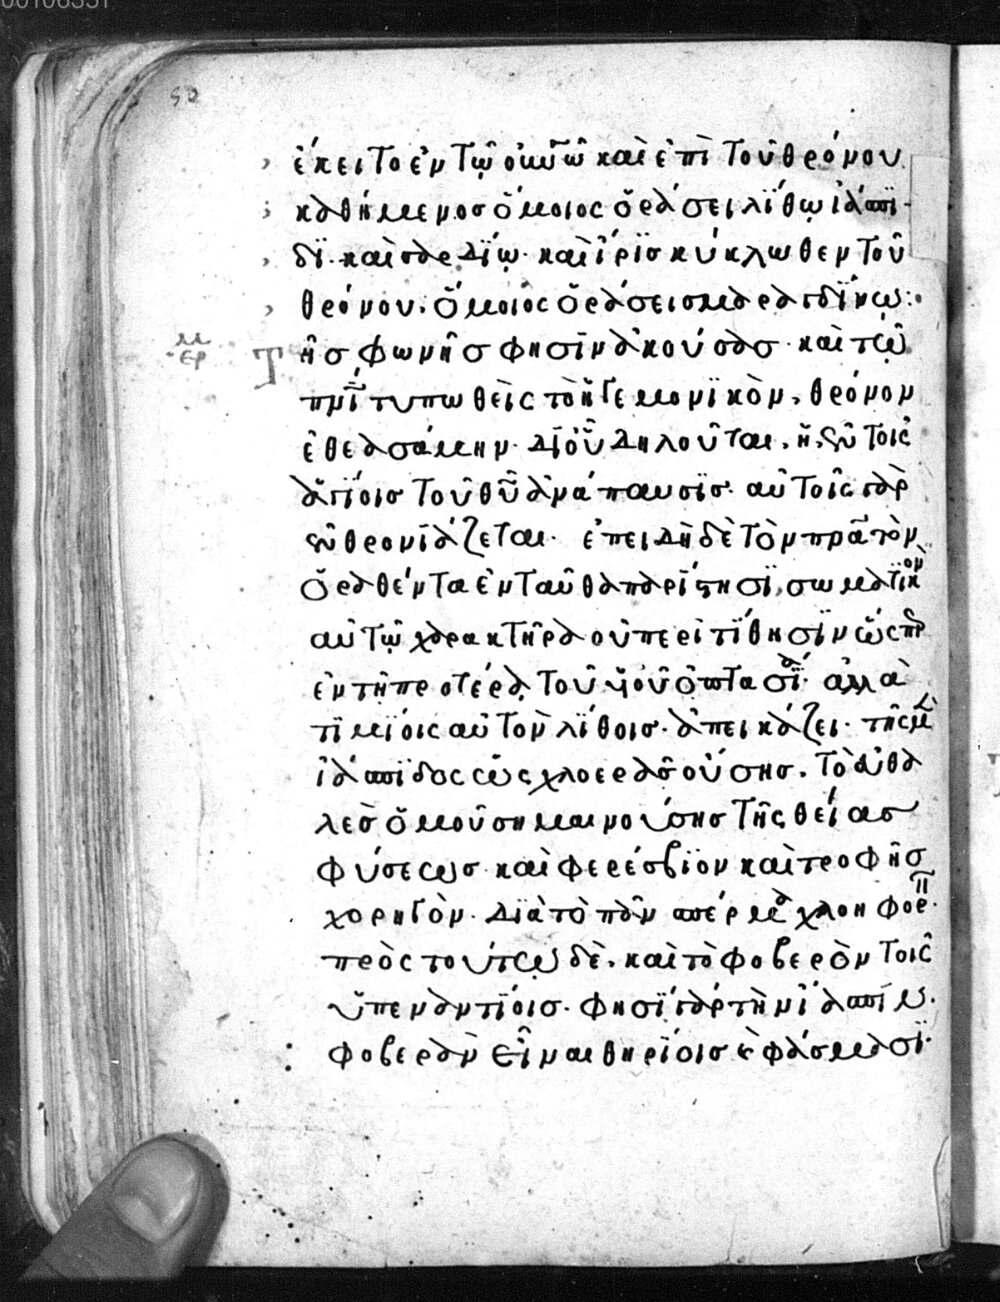 ἔκειτο ἐν τῷ οὐνῷ καὶ ἐπὶ τοῦ θρόνου
καθήμενοσ ὅμοιος ὁράσει λίθῳ ἰάσπι
δϊ· καὶ σαρδίῳ· καὶ ἶρϊσ κύκλωθεν τοῦ
θρόνου. ὅμοιος ὁράσει σμαραγδίνῳ:
Τῆσ φωνῆσ φησὶν ἀκούσασ· καὶ τῷ
πνι τυπωθεὶς τὸ ἡγεμονϊκὸν, θρόνον
ἐθεασάμην· δι' οὗ δηλοῦται, ἡ ἐν τοῖς
ἁγίοισ τοῦ θυ ἀνάπαυσϊσ· αὐτοῖς γὰρ
ἐνθρονϊάζεται· ἐπειδὴ δὲ τὸν πρα τὸν
ὁραθέντα ἐνταῦθα παρίστησϊ, σωματϊκὸν
αὐτῷ χαρακτῆρα οὐ περιτίθησϊν ὥσπερ
ἐν τῇ προτέρᾳ τοῦ υἱοῦ ὀπτασίᾳ· ἀλλὰ
τιμίοις αὐτὸν λίθοισ· ἀπεικάζει· τῆς μὲν
ἰάσπϊδος ὡς χλοερᾶσ οὔσησ, τὸ ἀειθα
λὲσ ὁμοῦ σημαινούσησ τῆς θείασ
φύσεωσ· καὶ φερέσβϊον καὶ τροφῆσ
χορηγὸν· διὰ τὸ πᾶν σπέρμα χλοηφορ
πρὸς τούτῳ δὲ, καὶ τὸ φοβερὸν τοῖς
ὑπεναντίοισ· φησὶ γὰρ τὴν ἰάσπιν
φοβερὰν εἶναι θηρίοισ καὶ φάσμασϊ·